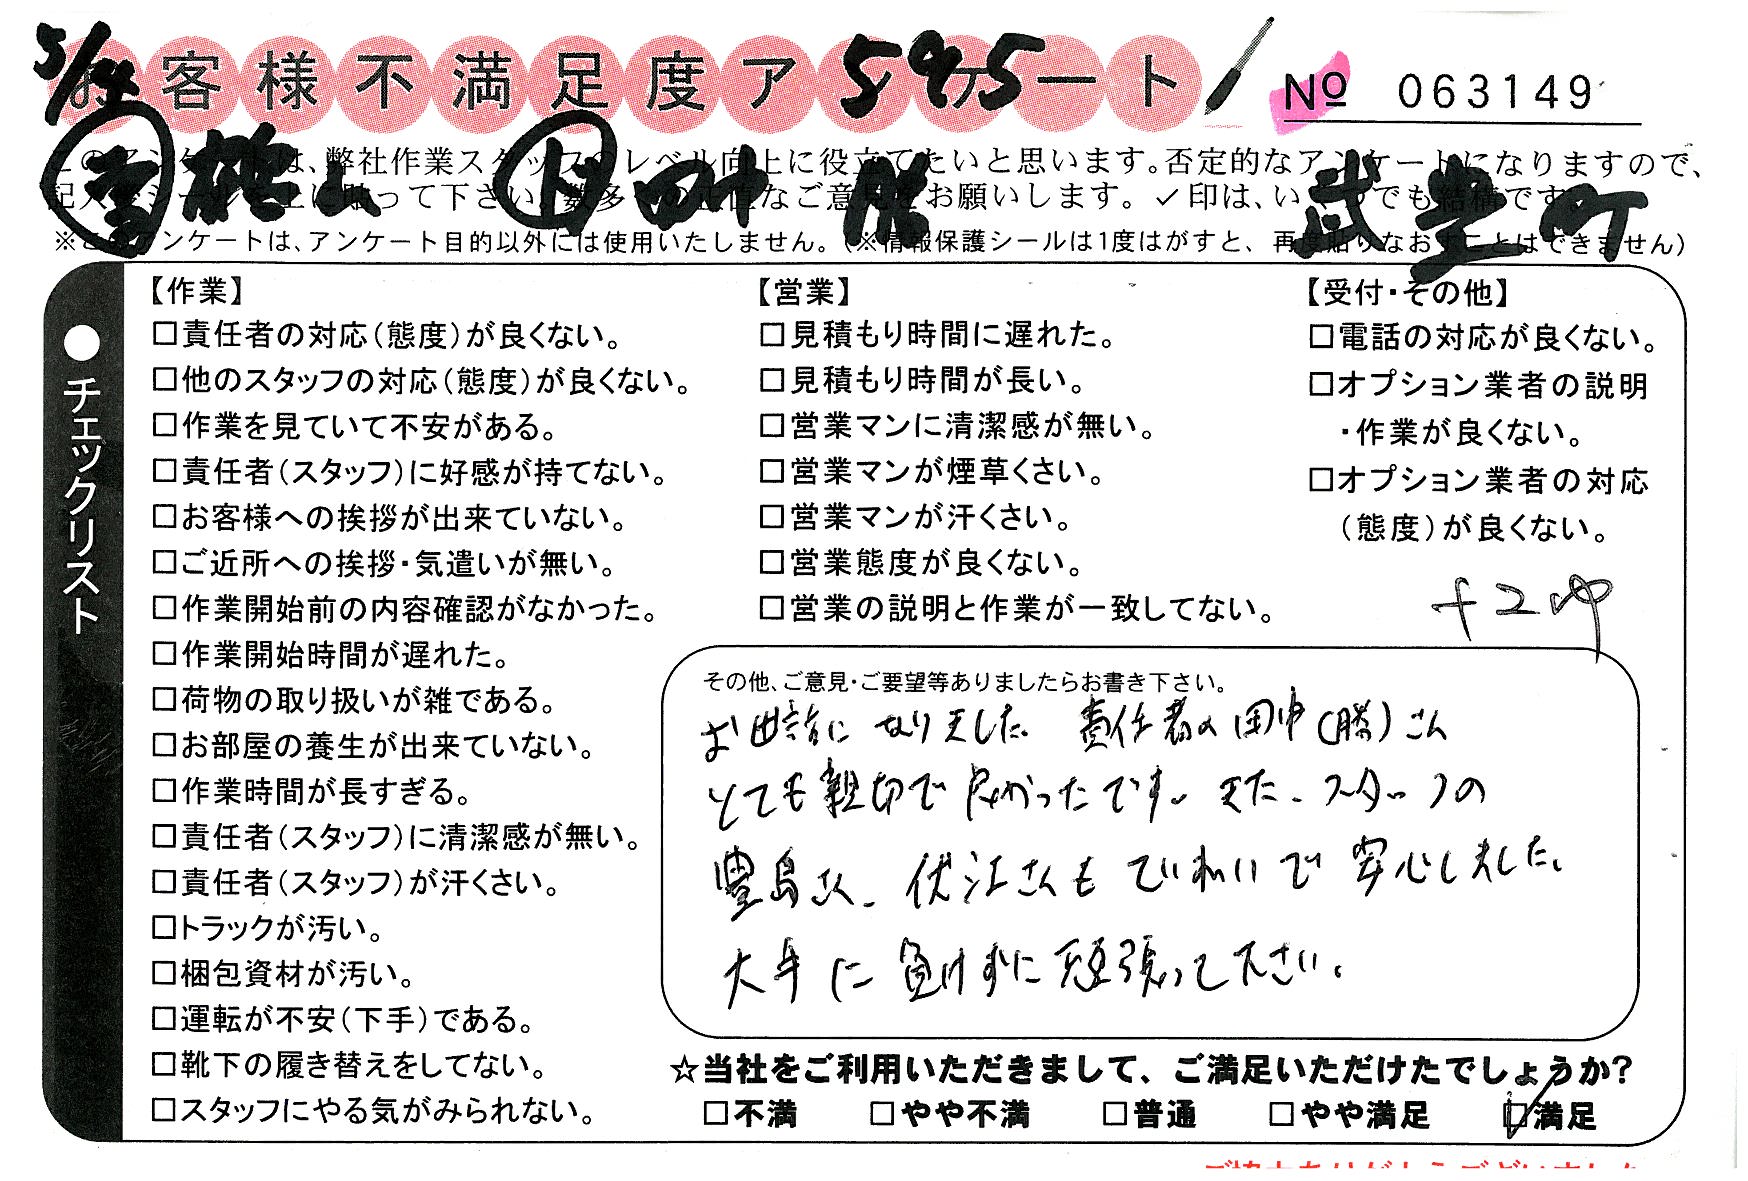 5/14
お客様不満足度アンケート
595
№ 063149
このアンケートは、弊社作業スタッフのレベル向上に役立てたいと思います。否定的なアンケートになりますので、
記入後シールを上に貼って下さい。数多くの正直なご意見をお願いします。✓印は、いくつでも結構です。
※このアンケートは、アンケート目的以外には使用いたしません。(※情報保護シールは1度はがすと、再度貼りなおすことはできません)
武豊町
●チェックリスト
【作業】
□責任者の対応(態度)が良くない。
□他のスタッフの対応(態度)が良くない。
□作業を見ていて不安がある。
□責任者(スタッフ)に好感が持てない。
□お客様への挨拶が出来ていない。
□ご近所への挨拶・気遣いが無い。
□作業開始前の内容確認がなかった。
□作業開始時間が遅れた。
□荷物の取り扱いが雑である。
□お部屋の養生が出来ていない。
□作業時間が長すぎる。
□責任者(スタッフ)に清潔感が無い。
□責任者(スタッフ)が汗くさい。
□トラックが汚い。
□梱包資材が汚い。
□運転が不安(下手)である。
□靴下の履き替えをしてない。
□スタッフにやる気がみられない。
【営業】
□見積もり時間に遅れた。
□見積もり時間が長い。
□営業マンに清潔感が無い。
□営業マンが煙草くさい。
□営業マンが汗くさい。
□営業態度が良くない。
□営業の説明と作業が一致してない。
【受付・その他】
□電話の対応が良くない。
□オプション業者の説明
・作業が良くない。
□オプション業者の対応
(態度)が良くない。
その他、ご意見・ご要望等ありましたらお書き下さい。
お世話になりました。責任者の田中(勝)さん
とても親切で良かったです。また、スタッフの
豊島さん、伏江さんもていねいで安心しました。
大手に負けずに頑張って下さい。
☆当社をご利用いただきまして、ご満足いただけたでしょうか?
□不満 □やや不満 □普通 □やや満足 ☑満足
ご協力ありがとうございました